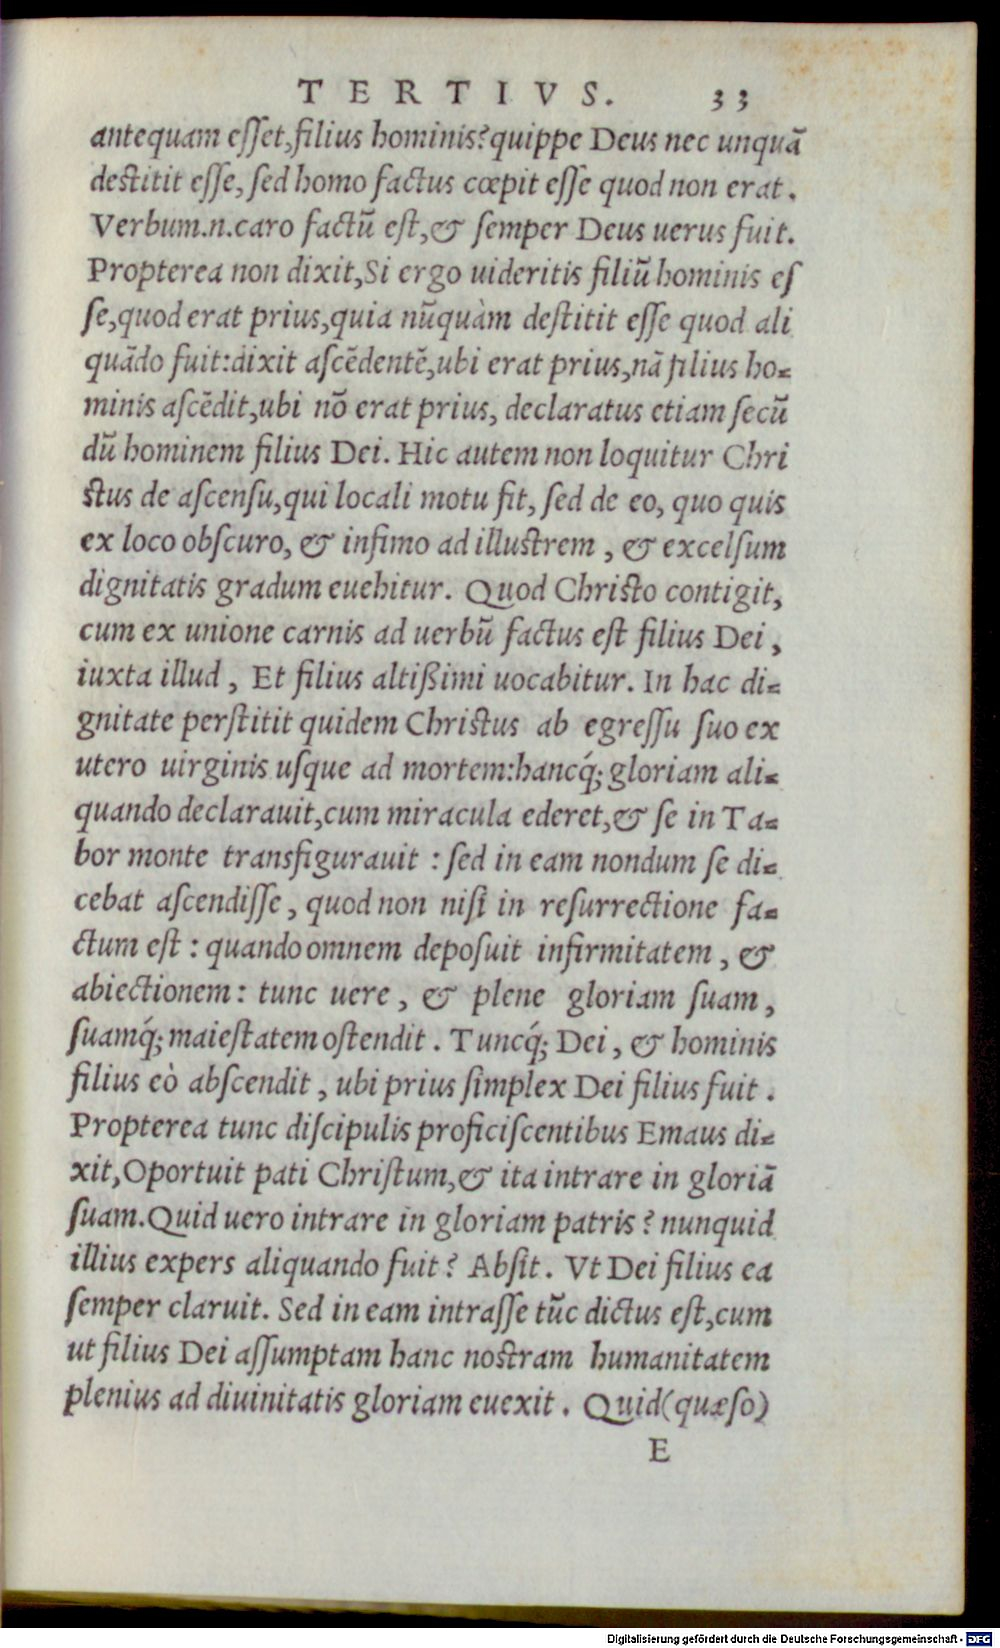 TERTIVS. 33
antequam eſſet, filius hominis? quippe Deus nec unquã
deſtitit eſſe, ſed homo factus cœpit eſſe quod non erat.
Verbum.n.caro factũ eſt, & ſemper Deus uerus fuit.
Propterea non dixit, Si ergo uideritis filiũ hominis eſ
ſe, quod erat prius, quia nũquàm deſtitit eſſe quod ali
quãdo fuit: dixit aſcẽdentẽ, ubi erat prius, nã filius ho-
minis aſcẽdit, ubi nõ erat prius, declaratus etiam ſecũ
dũ hominem filius Dei. Hic autem non loquitur Chri
ſtus de aſcenſu, qui locali motu fit, ſed de eo, quo quis
ex loco obſcuro, & infimo ad illuſtrem, & excelſum
dignitatis gradum euehitur. Quod Chriſto contigit,
cum ex unione carnis ad uerbũ factus eſt filius Dei,
iuxta illud, Et filius altißimi uocabitur. In hac di-
gnitate perſtitit quidem Chriſtus ab egreſſu ſuo ex
utero uirginis uſque ad mortem: hancq́; gloriam ali-
quando declarauit, cum miracula ederet, & ſe in Ta-
bor monte transfigurauit: ſed in eam nondum ſe di-
cebat aſcendiſſe, quod non niſi in reſurrectione fa-
ctum eſt: quando omnem depoſuit infirmitatem, &
abiectionem: tunc uere, & plene gloriam ſuam,
ſuamq́; maieſtatem oſtendit. Tuncq́; Dei, & hominis
filius eò abſcendit, ubi prius ſimplex Dei filius fuit.
Propterea tunc diſcipulis proficiſcentibus Emaus di-
xit, Oportuit pati Chriſtum, & ita intrare in gloriã
ſuam. Quid uero intrare in gloriam patris? nunquid
illius expers aliquando fuit? Abſit. Vt Dei filius ea
ſemper claruit. Sed in eam intraſſe tũc dictus eſt, cum
ut filius Dei aſſumptam hanc noſtram humanitatem
plenius ad diuinitatis gloriam euexit. Quid (quæſo)
E
Digitalisierung gefördert durch die Deutsche Forschungsgemeinschaft - DFG